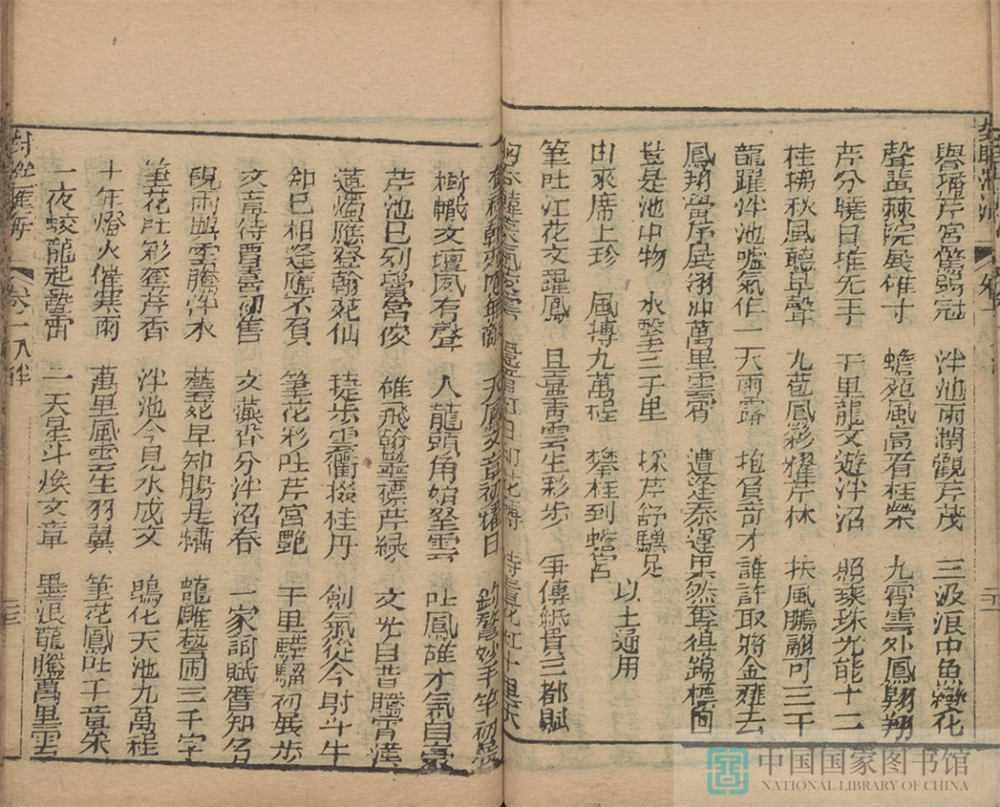 譽播芹宮驚弱冠 泮池雨潤觀芹茂 三汲浪中魚變化
聲蜚棘院展雄才 蟾苑風高看桂榮 九霄雲外鳳翱翔
芹分曉日堆先手 千里龍文遊泮沼 照琢珠光能十二
桂拂秋風聽早聲 九苞鳳彩耀芹林 扶風鵬翮可三千
龍躍泮池噓氣作一天雨露 抱負奇才誰許取將金雞去
鳳翔黌序展翮沖萬里雲霄 遭逢泰運果然奪得錦標回
豈是池中物 水擊三千里 採芹舒驥足
由來席上珍 風摶九萬程 攀桂到蟾宮
以上通用
筆吐江花文躍鳳 且喜青雲生彩步 爭傳紙貴三都賦
樹幟文壇夙有聲 人龍頭角始登雲 吐鳳雄才氣自豪
芹池已列黌宮俊 雄飛翰墨標芹綠 文光自昔騰霄漢
蓮燭應登翰苑仙 徒步雲衢掇桂丹 劍氣從今射斗牛
知己相逢應不負 筆花彩吐芹宮艷 千里驊騮初展步
文章待價喜初售 文藻香分泮沼春 一家詞賦舊知名
硯雨翻雲騰泮水 藝苑早知腸是繡 龍雕藝圃三千字
筆花吐彩奪芹香 泮池今見水成文 鵬化天池九萬程
十年燈火催寒雨 萬里風雲生羽翼 筆花鳳吐千章采
一夜蛟龍起蟄雷 一天星斗煥文章 墨浪龍騰萬里雲
對聯匯海 卷一入泮
中国国家图书馆
NATIONAL LIBRARY OF CHINA